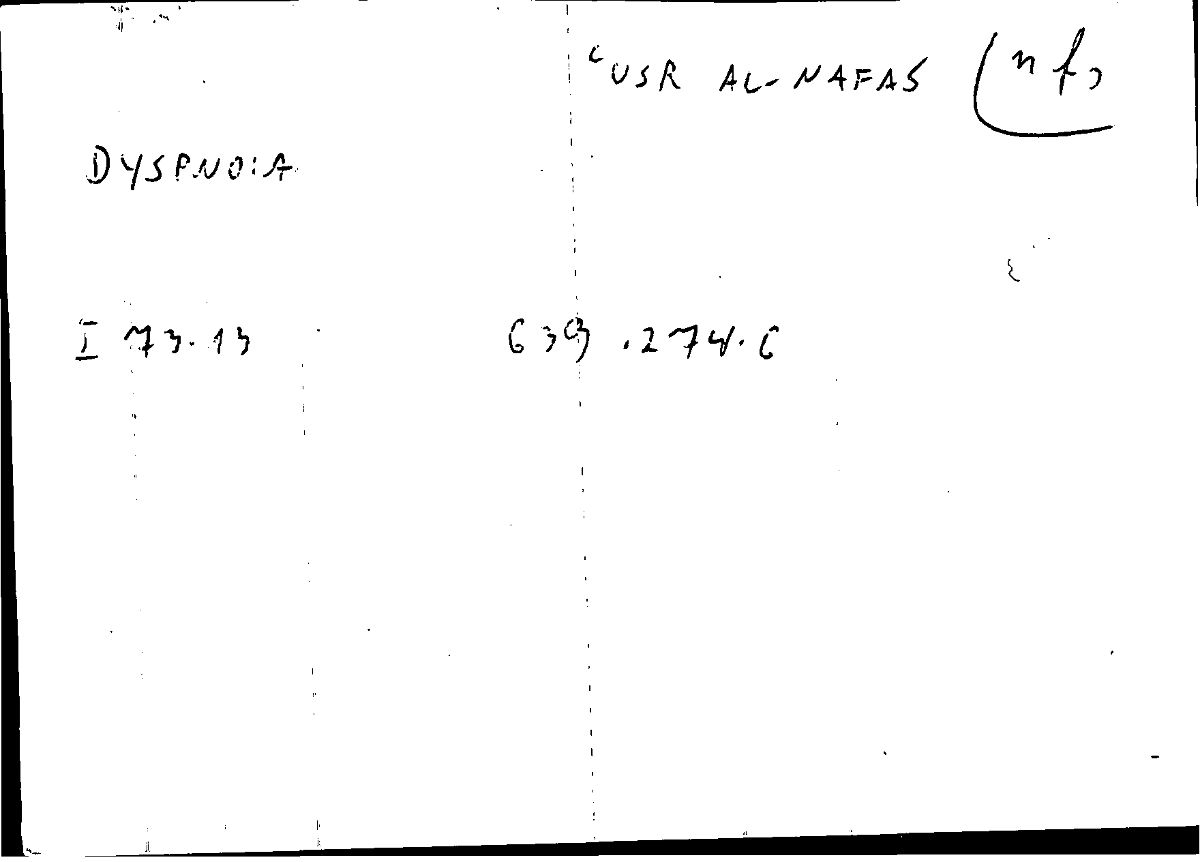 ʿUSR AL-NAFAS (nfs
DYSPNOIA
I 73.13 639.274.6